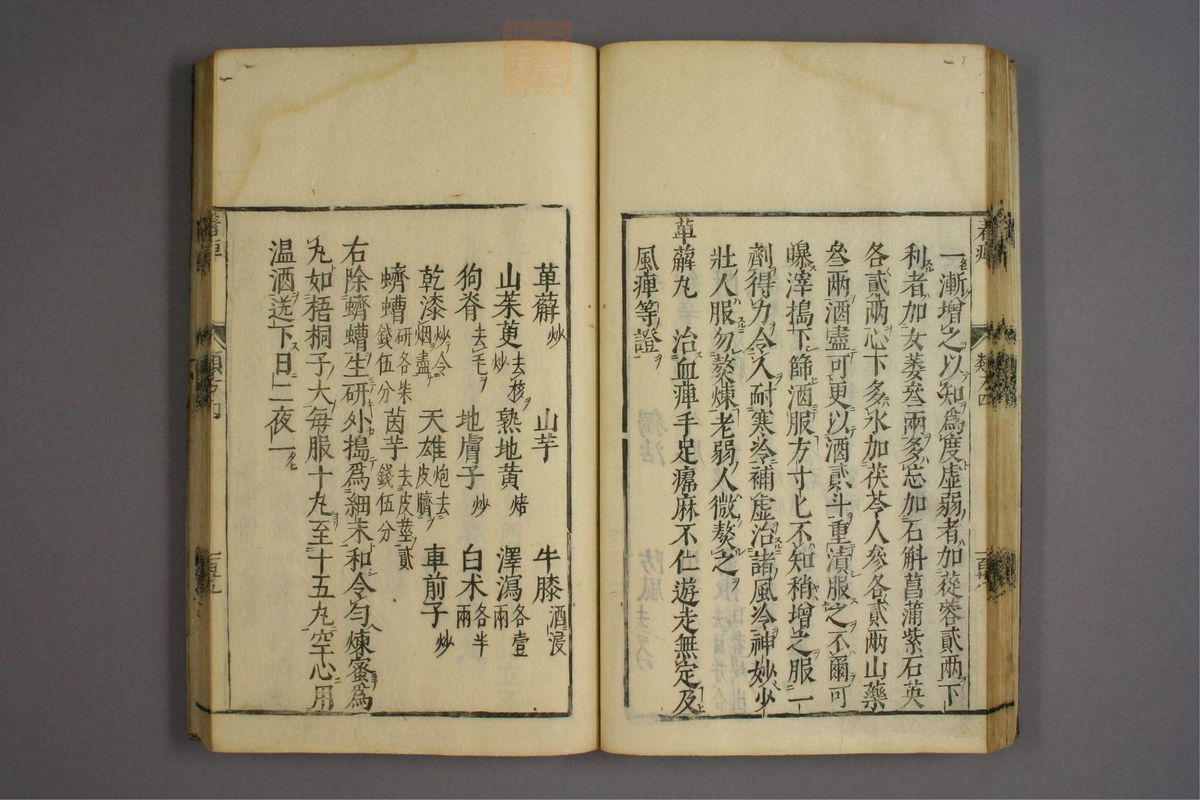 一漸增之以知爲度虛弱者加蓯蓉貳兩下
利者加女萎叄兩多忘加石斛菖蒲紫石英
各貳兩心下多水加茯苓人參各貳兩山藥
叄兩酒盡可更以酒貳斗重漬服之不爾可
曝滓搗下篩酒服方寸匕不知稍增之服一
劑得力令人耐寒冷補虛治諸風冷神妙少
壯人服勿熬煉老弱人微熬之
萆薢丸 治血痺手足𤸷麻不仁遊走無定及
風痺等證
萆薢炒 山芋 牛膝酒浸
山茱萸去核炒 熟地黃焙 澤瀉各壹兩
狗脊去毛 地膚子炒 白朮各半兩
乾漆炒令烟盡 天雄炮去皮臍 車前子炒
蠐螬研各朱錢伍分 茵芋去皮莖貳錢伍分
右除蠐螬生研外搗爲細末和令勻煉蜜爲
丸如梧桐子大每服十丸至十五丸空心用
温酒送下日二夜一
類方四
百四八
百四九